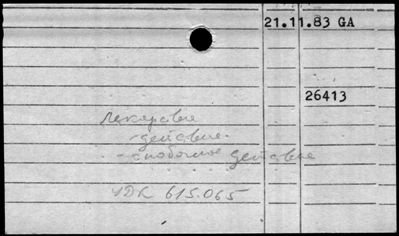 21.11.83 GA
26413
лекарствие
- действие
- побочное действие
УДК 615.065